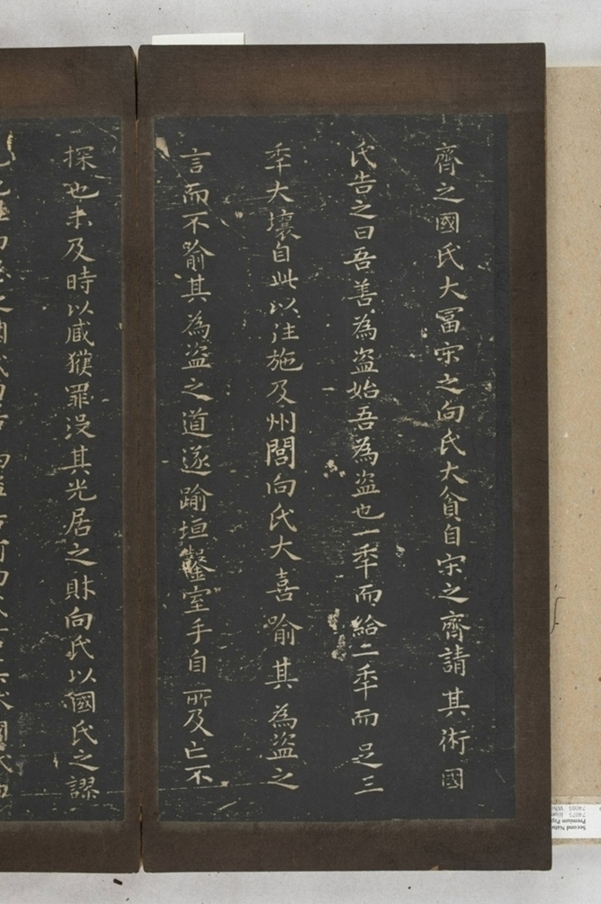 齊之國氏大冨宋之向氏大貧自宋之齊請其術國
氏告之曰吾善為盜始吾為盜也一秊而給二秊而足三
秊大壤自此以往施及州閭向氏大喜喻其為盜之
言而不喻其為盜之道遂踰垣鑿室手自所及亡不
探也未及時以臧獲罪没其先居之財向氏以國氏之謬